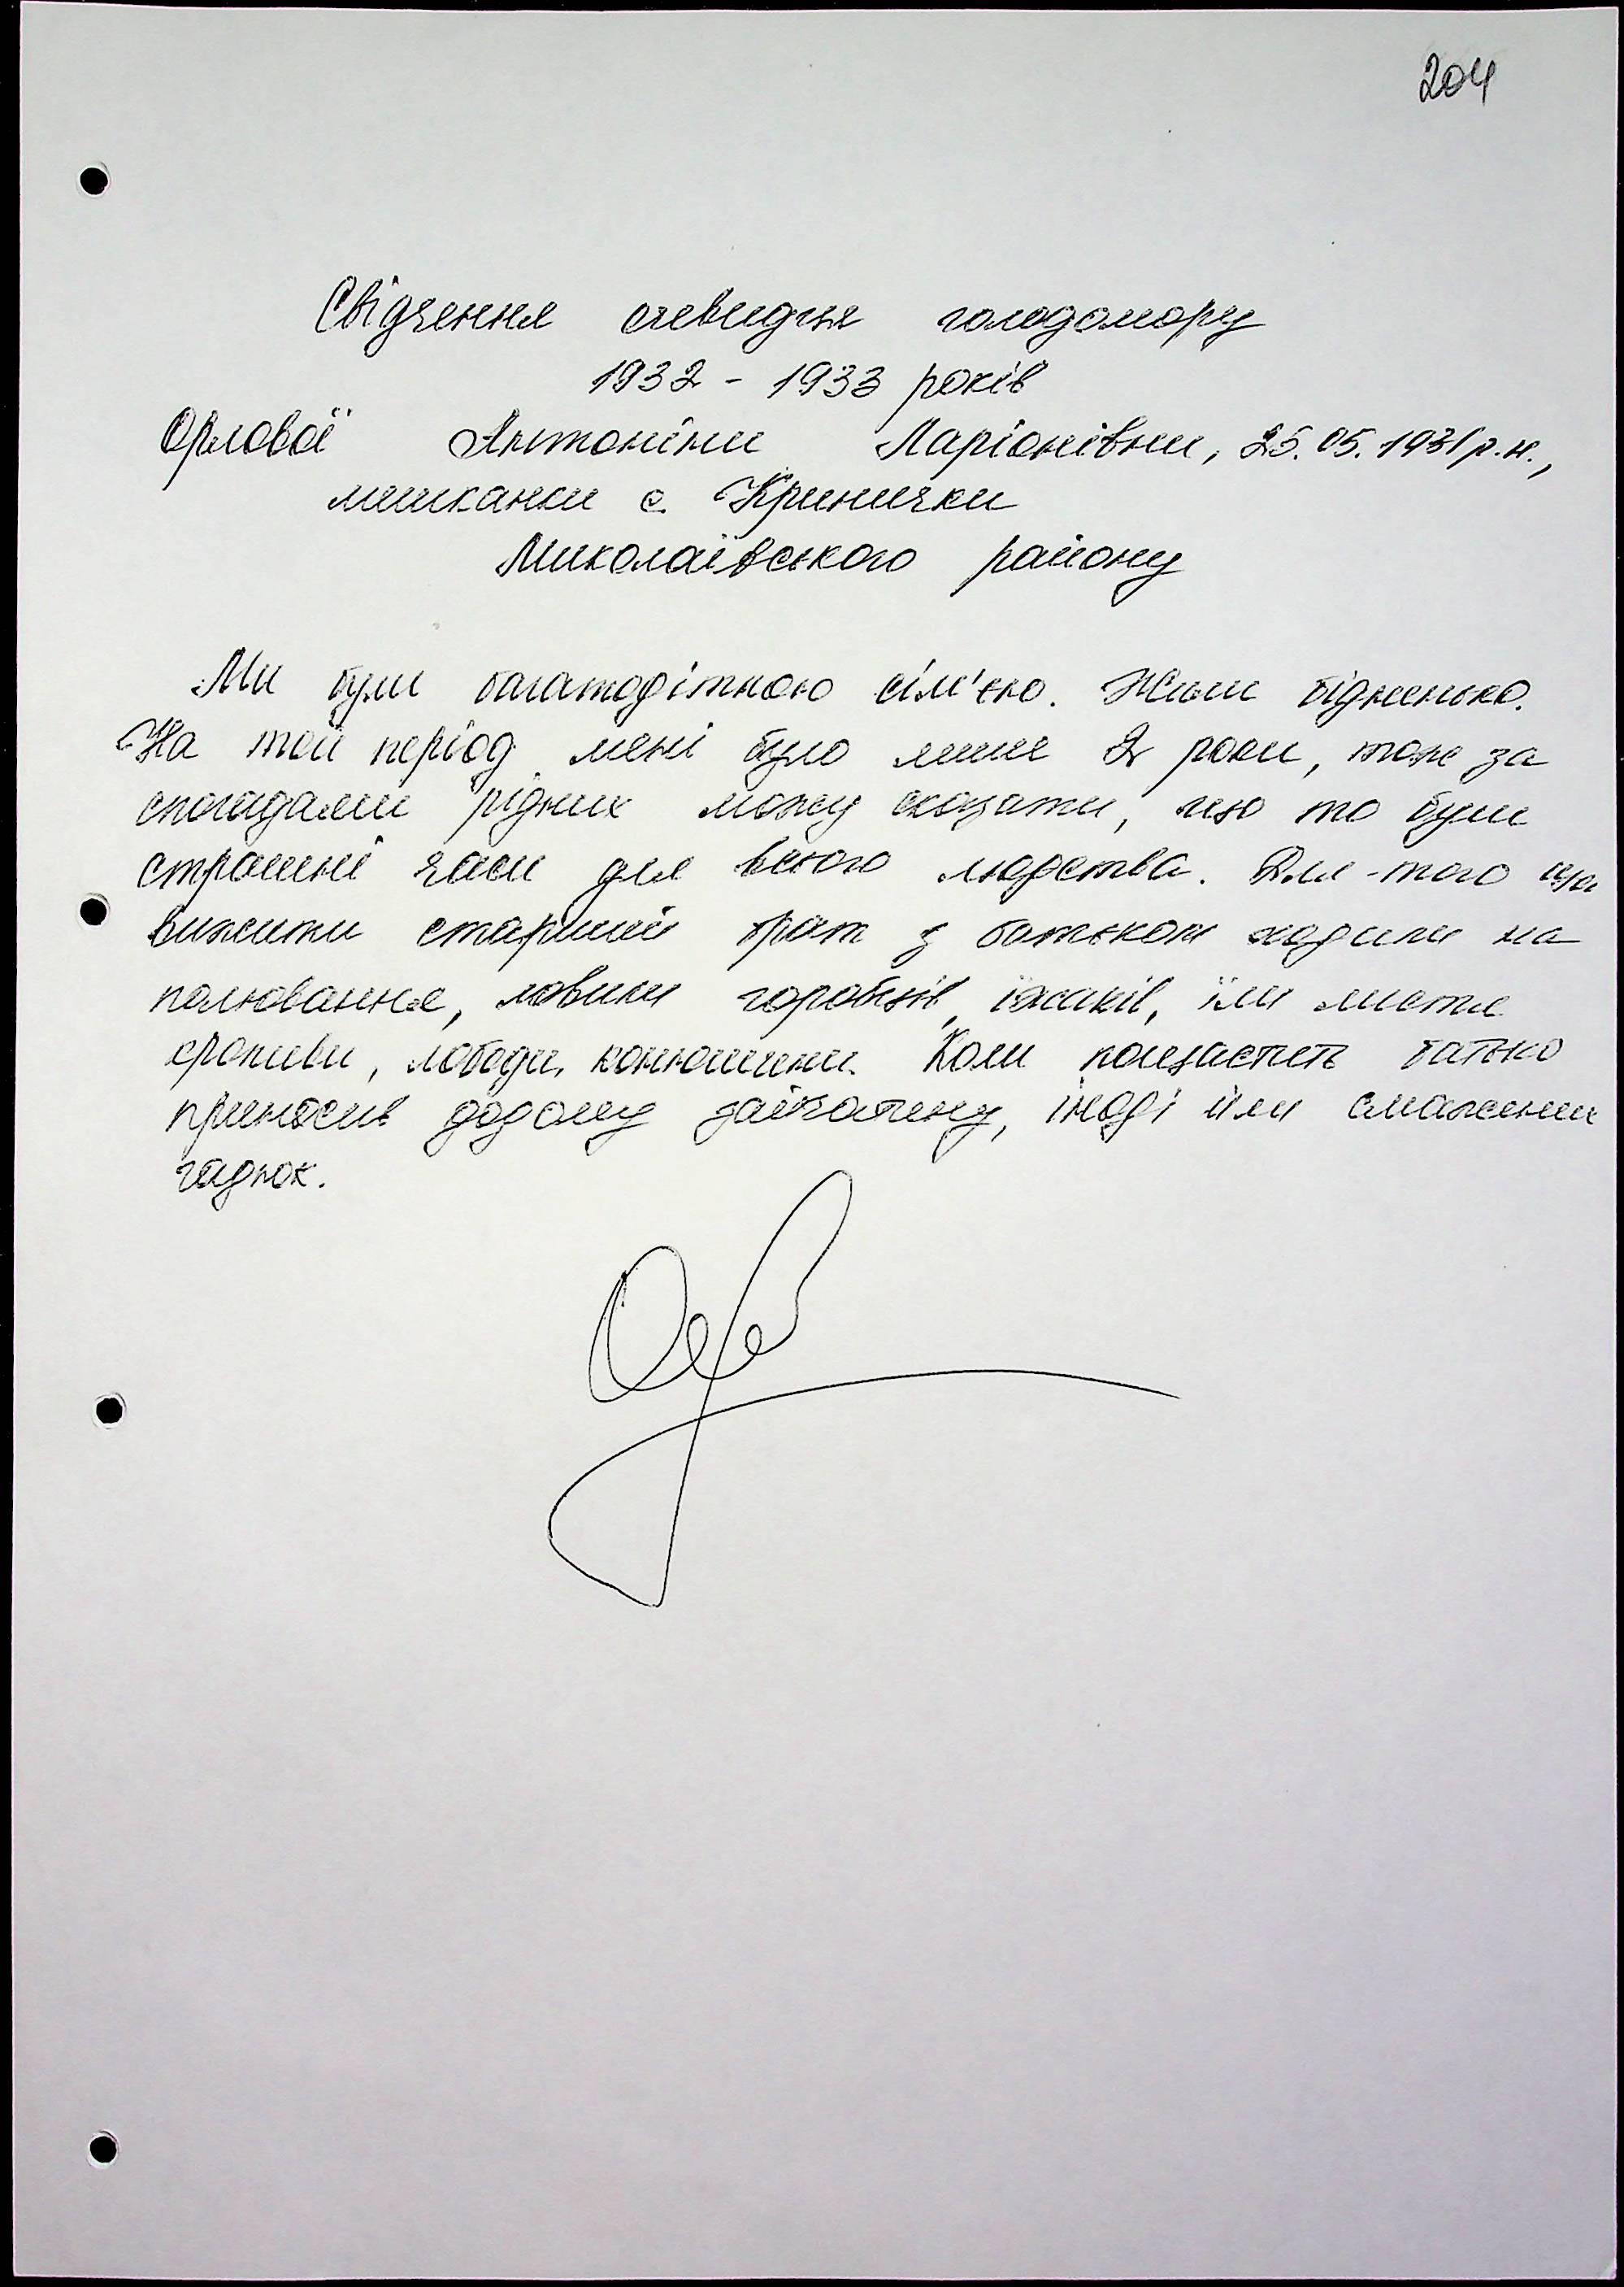 204
Свідчення очевидця голодомору
1932 - 1933 років
Орлової Антоніни Ларіонівни, 25.05.1931 р.н.,
мешканки с. Кринички
Миколаївського району
Ми були багатодітною сім'єю. Жили бідненько.
На той період мені було лише 2 роки, тож за
спогадами рідних можу сказати, що то були
страшні часи для всього людства. Для-того що
вижити старший брат з батьком ходили на
полювання, ловили горобців, їжаків, їли листя
кропиви, лободи, конюшини. Коли пощастить батько
приносив додому зайчатину, іноді їли смажених
гадюк.